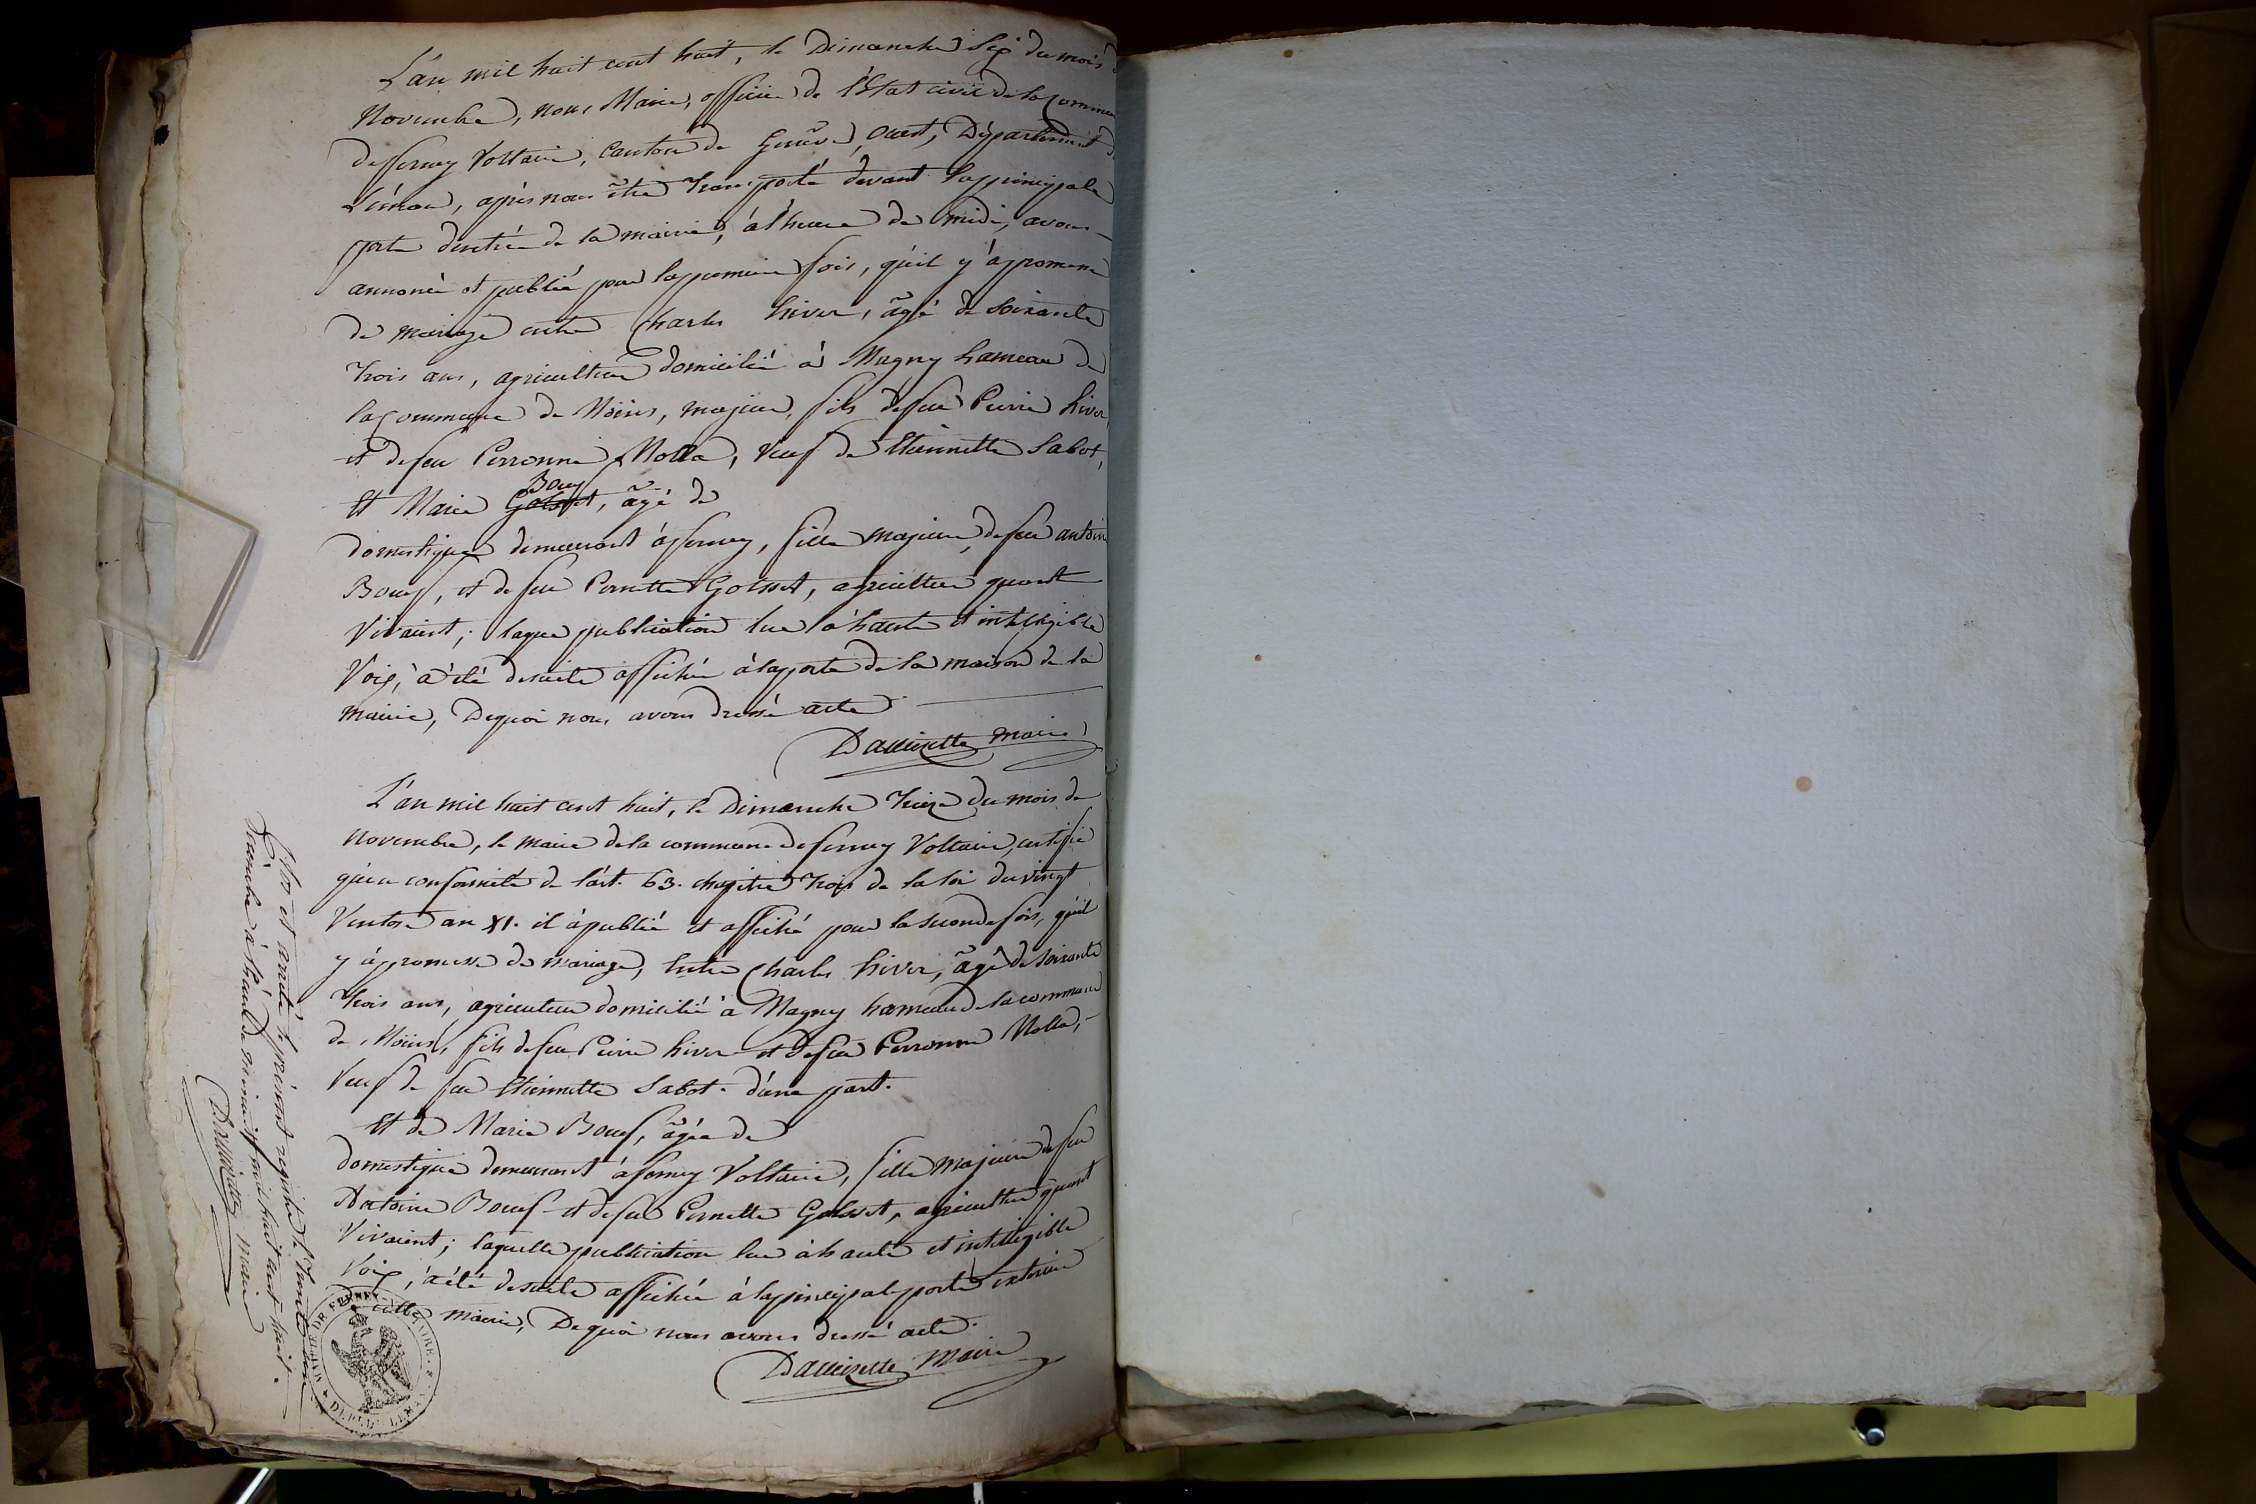 L'an mil huit cent huit, le Dimanche Six du mois de
Novembre, nous Maire, officier de l'Etat civil de la Commune
de ferney Voltaire, Canton de Genève, Ouest, Département du
Léman, après nous être transporté devant la principale
porte d'entrée de la mairie, à l'heure de midi, avons
annoncé et publié pour la premiere fois, qu'il y a promesse
de mariage entre Charles hiver, âgé de Soixante
trois ans, agriculteur domicilié à Magny hameau de
la Commune de Moëns, majeur, fils de feu Pierre hiver
et de feu Perronne Molla, Veuf de Etiennette Sabot,
Et Marie Golsset, Bouf âgé de
domestique demeurant à ferney, fille majeure, de feu antoine
Bouf, et de feu Pernette Golsset, agriculteur quand
Vivaient; laque publication lue à haute et intelligible
Voix, à été desuite affichée à la porte de la maison de la
mairie, Dequoi nous avons dressé acte
Dauinette maire
L'an mil huit cent huit, le Dimanche treize du mois de
Novembre, le maire de la commune de ferney Voltaire, certifie
qu'en conformité de l'art. 63. chapitre trois de la loi du vingt
Ventose an XI. il à publié et affiché pour la seconde fois, qu'il
y à promesse de mariage, Entre Charles hiver, âgé de soixante
trois ans, agriculteur domicilié à Magny hameau de la commune
de Moëns, fils de feu Pierre hiver et de feu Perronne Molla,
Veuf de feu Etiennette Sabot. d'une part.
Et de Marie Bouf, âgée de
domestique demeurant à ferney Voltaire, fille majeure de feu
Antoine Bouf et de feu Pernette Golsset, agriculteur quand
Vivaient; laquelle publication lue à haute et intelligible
Voix, à été desuite affichée à la principale porte exterieure
de cette mairie, Dequoi nous avons dressé acte.
Dauinette Maire
Clos et arreté le présent registre le trente un
Décembre à l'heure de minuit mil huit cent huit.
Dauinette maire
MAIRIE DE FERNEY-VOLTAIRE
DEP.T DU LEMAN